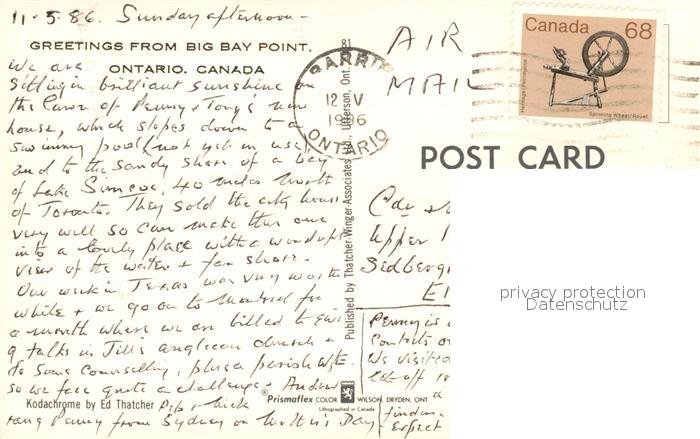 11-5-86. Sunday afternoon-
GREETINGS FROM BIG BAY POINT,
ONTARIO, CANADA
We are
sitting in brilliant sunshine on
the lawn of Penny & Tony's new
house, which slopes down to a
swimming pool (not yet in use)
and to the sandy shore of a bay
of Lake Simcoe, 40 miles North
of Toronto. They sold the city house
very well so can make this one
into a lovely place with a wonderful
view of the water & far shore.
Our week in Texas was very worth
while & we go on to Montreal for
a month where we are billed to give
9 talks in Jill's anglican church &
do some counselling, plus a parish
so we face quite a challenge. Andrew
Pip & Nick
rang Penny from Sydney on Mother's Day.
Kodachrome by Ed Thatcher
Published by Thatcher-Winger-Associates Ltd., Utterson, Ont. 81
Prismaflex COLOR WILSON, DRYDEN, ONT.
Lithographed in Canada
BARRIE
12 V
1986
ONTARIO
AIR
MAIL
Canada 68
Heritage / Patrimoine
Spinning Wheel/Rouet
POST CARD
Cdr &
Upper
Sedbergh
Penny is
We visited
let off
a
expect
privacy protection
Datenschutz